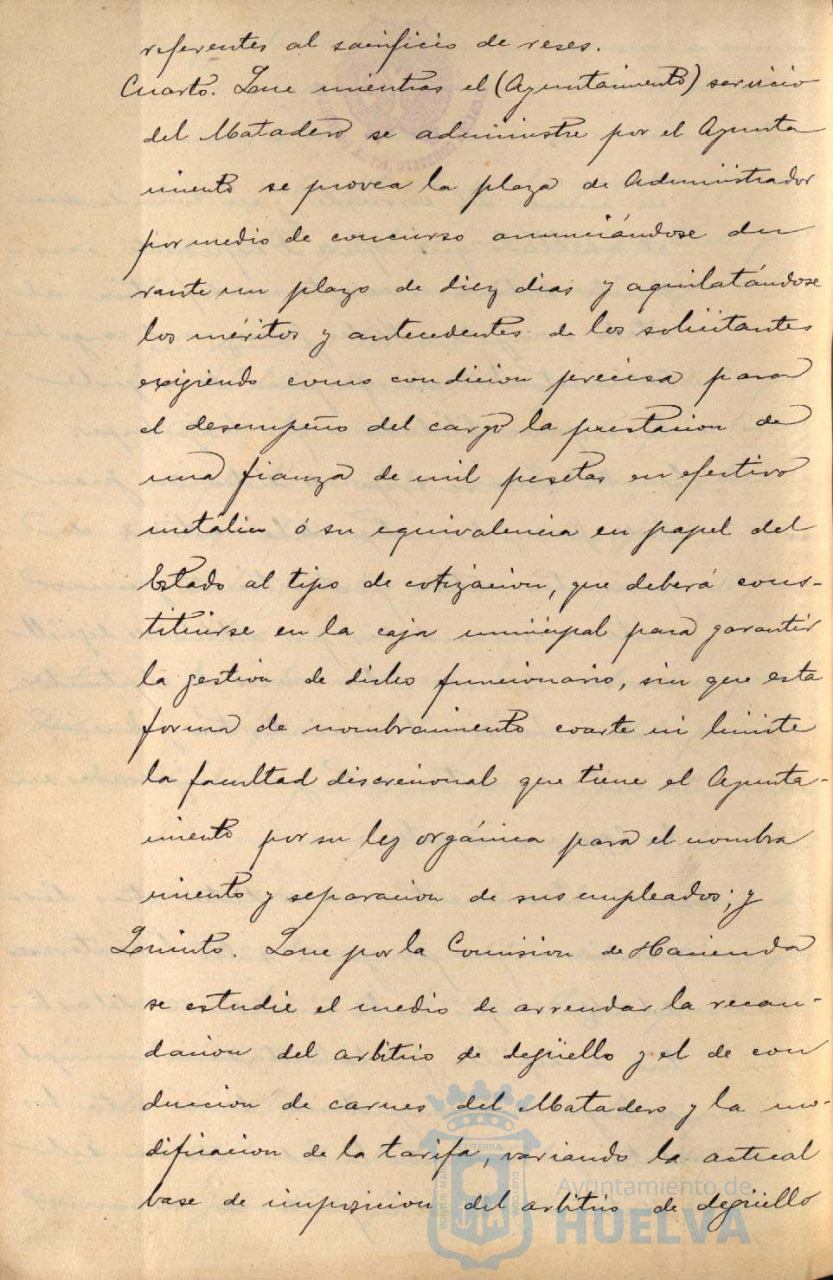 referentes al sacrificio de reses.
Cuarto. Que mientras el (Ayuntamiento) servicio
del Matadero se administre por el Ayunta
miento se provea la plaza de Administrador
por medio de concurso anunciándose du
rante un plazo de diez dias y aquilatándose
los méritos y antecedentes de los solicitantes
exigiendo como condicion precisa para
el desempeño del cargo la prestacion de
una fianza de mil pesetas en efectivo
metálico ó su equivalencia en papel del
Estado al tipo de cotizacion, que deberá cons-
tituirse en la caja municipal para garantir
la gestion de dicho funcionario, sin que esta
forma de nombramiento coarte ni limite
la facultad discrecional que tiene el Ayunta-
miento por su ley orgánica para el nombra
miento y separacion de sus empleados; y
Quinto. Que por la Comision de Hacienda
se estudie el medio de arrendar la recau-
dacion del arbitrio de degüello y el de con
duccion de carnes del Matadero y la mo-
dificacion de la tarifa, variando la actual
base de imposicion del arbitrio de degüello
Ayuntamiento de
HUELVA